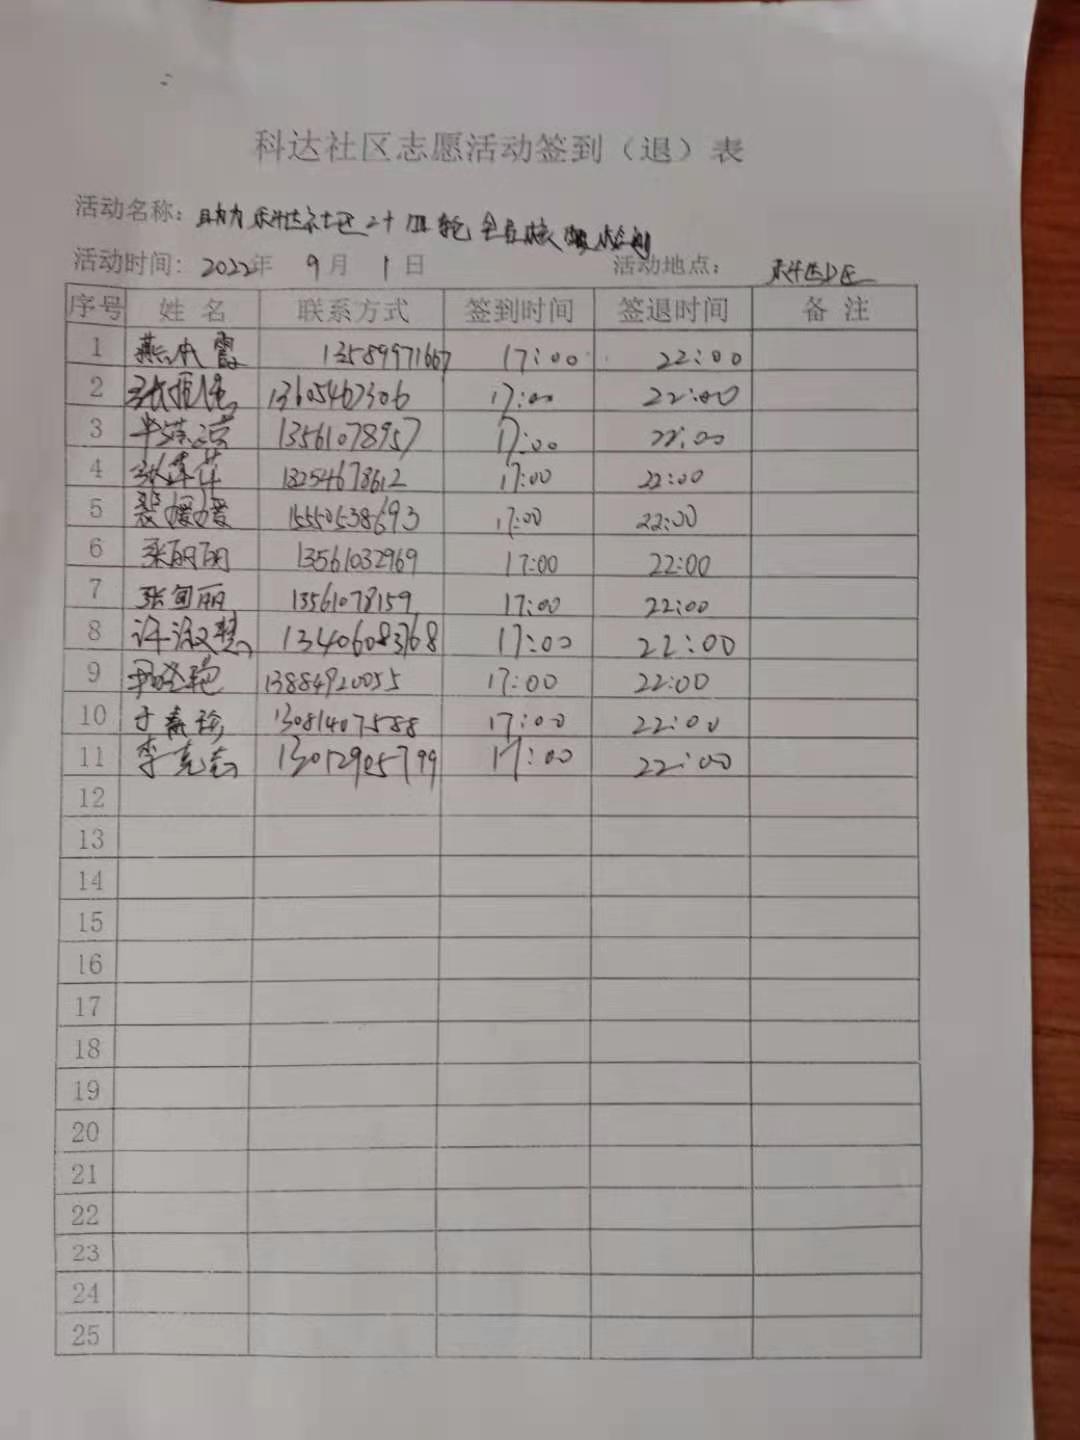 科达社区志愿活动签到（退）表
活动名称：助力科达社区二十四轮全员核酸检测
活动时间：2022年 9月 1日 活动地点：科达社区
序号 姓名 联系方式 签到时间 签退时间 备注
1 燕本霞 13589971667 17:00 22:00
2 13605467306 17:00 22:00
3 13561078957 17:00 22:00
4 张莲花 18254678612 17:00 22:00
5 裴媛媛 15550538693 17:00 22:00
6 张丽丽 13561032969 17:00 22:00
7 13561078159 17:00 22:00
8 许淑慧 13406083768 17:00 22:00
9 13884920055 17:00 22:00
10 于春玲 13081407588 17:00 22:00
11 李克志 13012905799 17:00 22:00
12
13
14
15
16
17
18
19
20
21
22
23
24
25